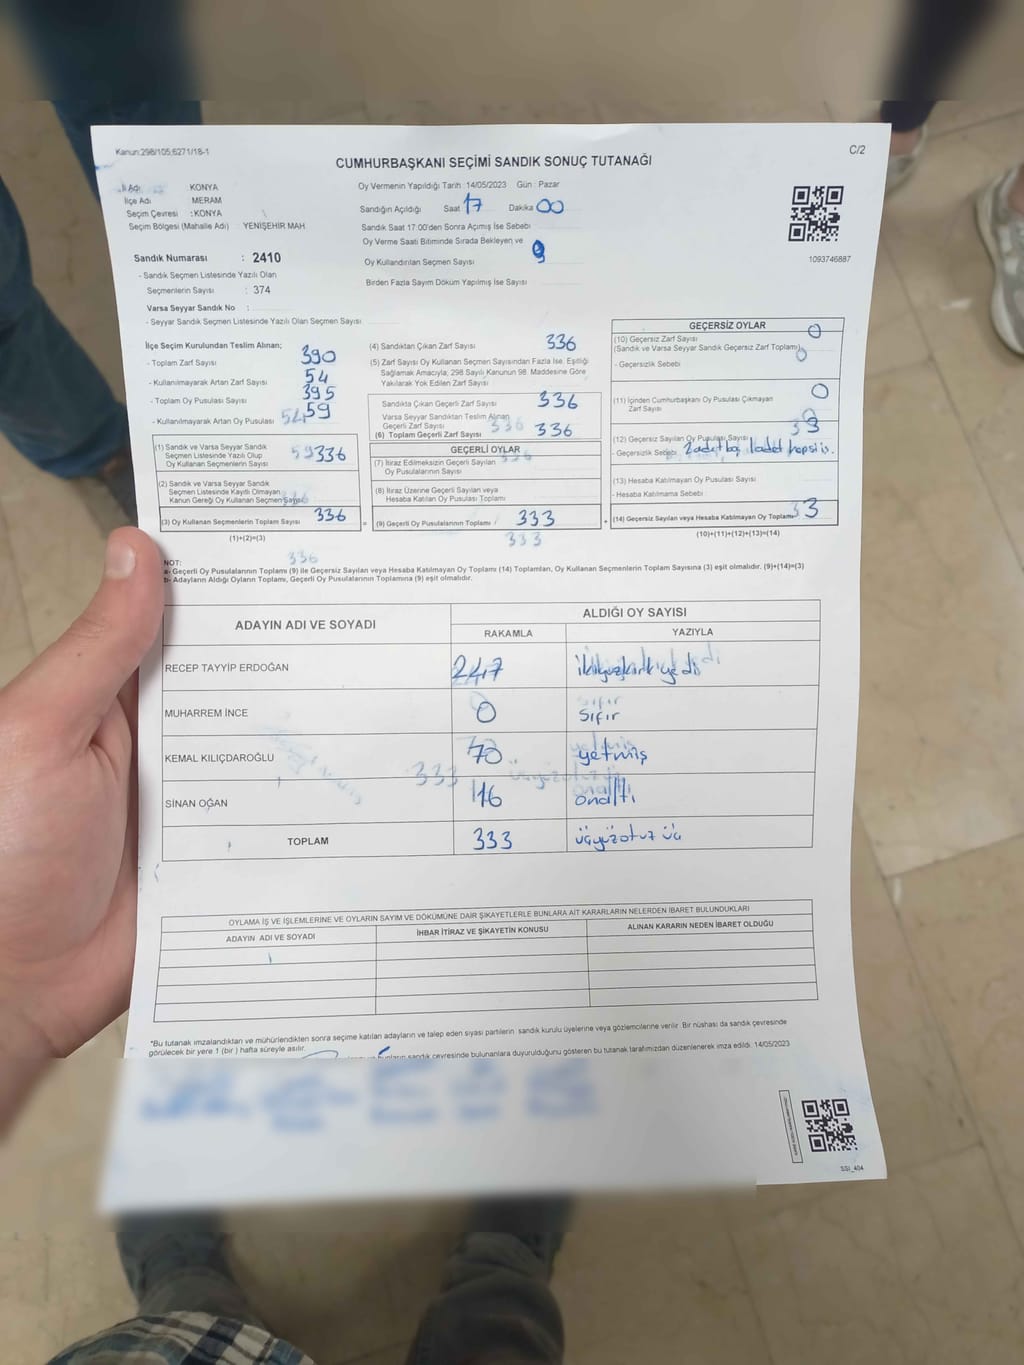 Kanun:298/105;6271/18-1
C/2
CUMHURBAŞKANI SEÇİMİ SANDIK SONUÇ TUTANAĞI
İl Adı KONYA
İlçe Adı MERAM
Seçim Çevresi : KONYA
Seçim Bölgesi (Mahalle Adı) YENİŞEHİR MAH
Oy Vermenin Yapıldığı Tarih :14/05/2023 Gün : Pazar
Sandığın Açıldığı Saat 17 Dakika 00
Sandık Saat 17:00'den Sonra Açımış İse Sebebi
Oy Verme Saati Bitiminde Sırada Bekleyen ve
Oy Kullandırılan Seçmen Sayısı
Birden Fazla Sayım Döküm Yapılmış İse Sayısı
1093746887
Sandık Numarası : 2410
- Sandık Seçmen Listesinde Yazılı Olan
Seçmenlerin Sayısı : 374
Varsa Seyyar Sandık No :
- Seyyar Sandık Seçmen Listesinde Yazılı Olan Seçmen Sayısı
İlçe Seçim Kurulundan Teslim Alınan;
- Toplam Zarf Sayısı 390
- Kullanılmayarak Artan Zarf Sayısı 54
- Toplam Oy Pusulası Sayısı 395
- Kullanılmayarak Artan Oy Pusulası 59
(1) Sandık ve Varsa Seyyar Sandık
Seçmen Listesinde Yazılı Olup
Oy Kullanan Seçmenlerin Sayısı 336
(2) Sandık ve Varsa Seyyar Sandık
Seçmen Listesinde Kayıtlı Olmayan
Kanun Gereği Oy Kullanan Seçmen Sayısı
(3) Oy Kullanan Seçmenlerin Toplam Sayısı 336
(1)+(2)=(3)
336
(4) Sandıktan Çıkan Zarf Sayısı 336
(5) Zarf Sayısı Oy Kullanan Seçmen Sayısından Fazla İse, Eşitliği
Sağlamak Amacıyla; 298 Sayılı Kanunun 98. Maddesine Göre
Yakılarak Yok Edilen Zarf Sayısı
Sandıkta Çıkan Geçerli Zarf Sayısı 336
Varsa Seyyar Sandıktan Teslim Alınan
Geçerli Zarf Sayısı 336
(6) Toplam Geçerli Zarf Sayısı 336
=
GEÇERLİ OYLAR
(7) İtiraz Edilmeksizin Geçerli Sayılan
Oy Pusulalarının Sayısı
(8) İtiraz Üzerine Geçerli Sayılan veya
Hesaba Katılan Oy Pusulası Toplamı
(9) Geçerli Oy Pusulalarının Toplamı 333
333
+
GEÇERSİZ OYLAR
(10) Geçersiz Zarf Sayısı 0
(Sandık ve Varsa Seyyar Sandık Geçersiz Zarf Toplamı) 0
- Geçersizlik Sebebi
(11) İçinden Cumhurbaşkanı Oy Pusulası Çıkmayan 0
Zarf Sayısı
(12) Geçersiz Sayılan Oy Pusulası Sayısı 3
- Geçersizlik Sebebi 2 adet boş 1 adet hepsi is.
(13) Hesaba Katılmayan Oy Pusulası Sayısı
- Hesaba Katılmama Sebebi
(14) Geçersiz Sayılan veya Hesaba Katılmayan Oy Toplamı 3
(10)+(11)+(12)+(13)=(14)
NOT:
a- Geçerli Oy Pusulalarının Toplamı (9) ile Geçersiz Sayılan veya Hesaba Katılmayan Oy Toplamı (14) Toplamları, Oy Kullanan Seçmenlerin Toplam Sayısına (3) eşit olmalıdır. (9)+(14)=(3)
b- Adayların Aldığı Oyların Toplamı, Geçerli Oy Pusulalarının Toplamına (9) eşit olmalıdır.
ADAYIN ADI VE SOYADI
ALDIĞI OY SAYISI
RAKAMLA YAZIYLA
RECEP TAYYİP ERDOĞAN 247 ikiyüzkırkyedi
MUHARREM İNCE 0 sıfır
KEMAL KILIÇDAROĞLU 70 yetmiş
333
SİNAN OĞAN 16 onaltı
TOPLAM 333 üçyüzotuz üç
OYLAMA İŞ VE İŞLEMLERİNE VE OYLARIN SAYIM VE DÖKÜMÜNE DAİR ŞİKAYETLERLE BUNLARA AİT KARARLARIN NELERDEN İBARET BULUNDUKLARI
ADAYIN ADI VE SOYADI İHBAR İTİRAZ VE ŞİKAYETİN KONUSU ALINAN KARARIN NEDEN İBARET OLDUĞU
*Bu tutanak imzalandıktan ve mühürlendikten sonra seçime katılan adayların ve talep eden siyasi partilerin sandık kurulu üyelerine veya gözlemcilerine verilir. Bir nüshası da sandık çevresinde
görülecek bir yere 1 (bir ) hafta süreyle asılır.
sandık çevresinde bulunanlara duyurulduğunu gösteren bu tutanak tarafımızdan düzenlenerek imza edildi. 14/05/2023
SSI_404